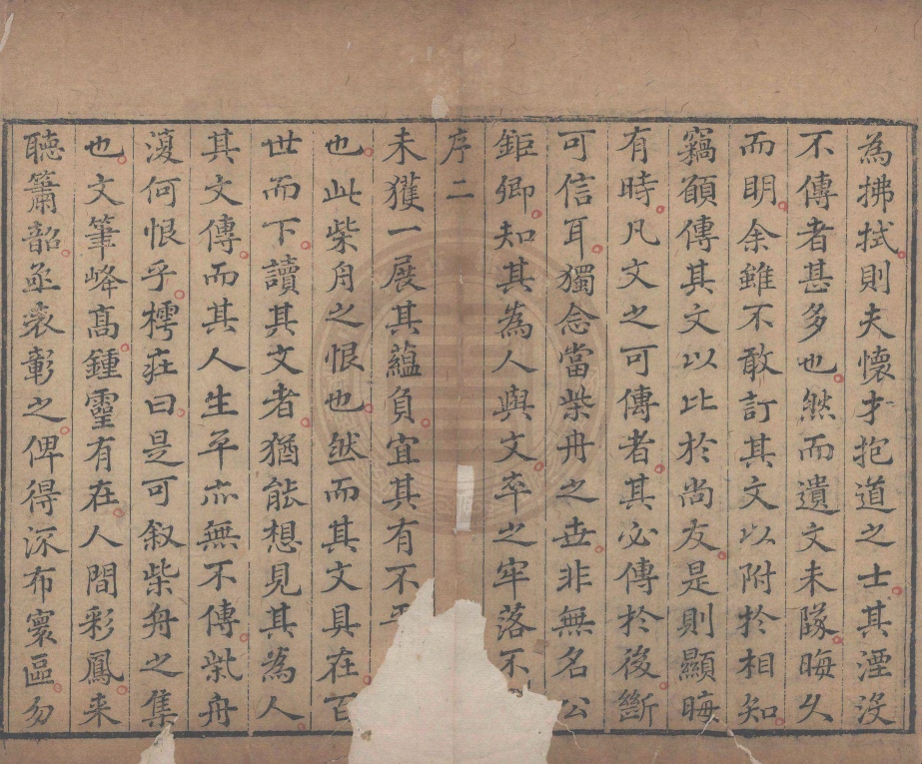 為拂拭則夫懷才抱道之士其湮没
不傳者甚多也然而遺文未隊晦久
而明余雖不敢訂其文以附於相知
竊願傳其文以比於尚友是則顯晦
有時凡文之可傳者其必傳於後斷
可信耳獨念當柴舟之世非無名公
鉅卿知其為人與文卒之牢落不
序二
未獲一展其蘊負宜其有不平
也此柴舟之恨也然而其文具在百
世而下讀其文者猶能想見其為人
其文傳而其人生平亦無不傳柴舟
復何恨乎樗莊曰是可叙柴舟之集
也文筆峰高鍾靈有在人間彩鳳来
聴簫韶亟表彰之俾得深布寰區勿